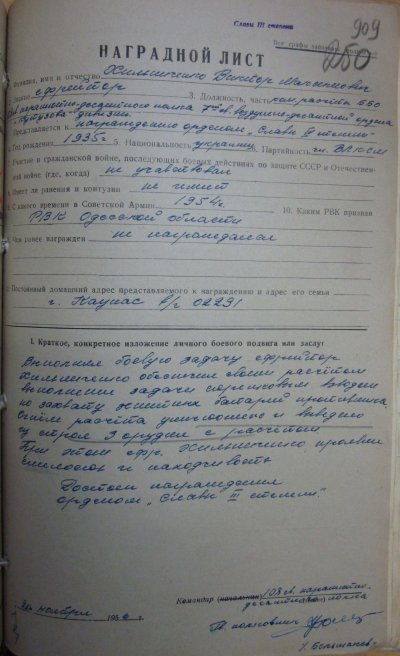 Славы III степени
909
250
Все графы заполнять полностью
НАГРАДНОЙ ЛИСТ
1. Фамилия, имя и отчество Хильниченко Виктор
2. Звание ефрейтор 3. Должность, часть ком. расчета
гв. парашютно-десантного полка 7й гв. воздушно-десантной ордена
Кутузова дивизии
Представляется к награждению орденом „Слава III степени“
4. Год рождения 1935 г. 5. Национальность украинец 6. Партийность чл. ВЛКСМ
7. Участие в гражданской войне, последующих боевых действиях по защите СССР и Отечествен-
ной войне (где, когда) не участвовал
8. Имеет ли ранения и контузии не имеет
9. С какого времени в Советской Армии 1954 г. 10. Каким РВК призван
РВК Одесской области
11. Чем ранее награжден не награждался
12. Постоянный домашний адрес представляемого к награждению и адрес его семьи
г. Каунас в/ч 02291
I. Краткое, конкретное изложение личного боевого подвига или заслуг
Выполняя боевую задачу ефрейтор
Хильниченко обеспечил своим расчетом
выполнение задачи стрелковым взводом
по захвату зенитных батарей противника.
Огнём расчета уничтожено и выведено
из строя 3 орудия с расчетом
При этом ефр. Хильниченко проявил
смелость и находчивость
Достоин награждения
орденом „Славы III степени“.
Командир (начальник) 108 гв. парашютно-
десантного полка
ноября 1956 г.
гв. полковник